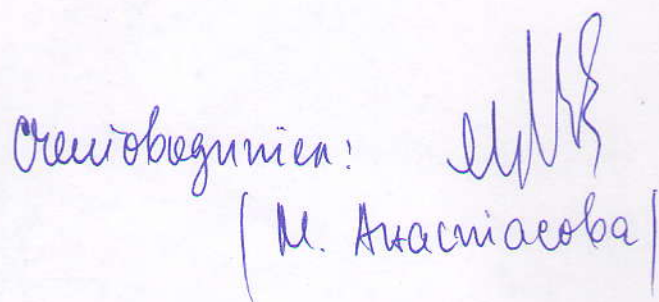 Счетоводител:
(М. Анастасова)